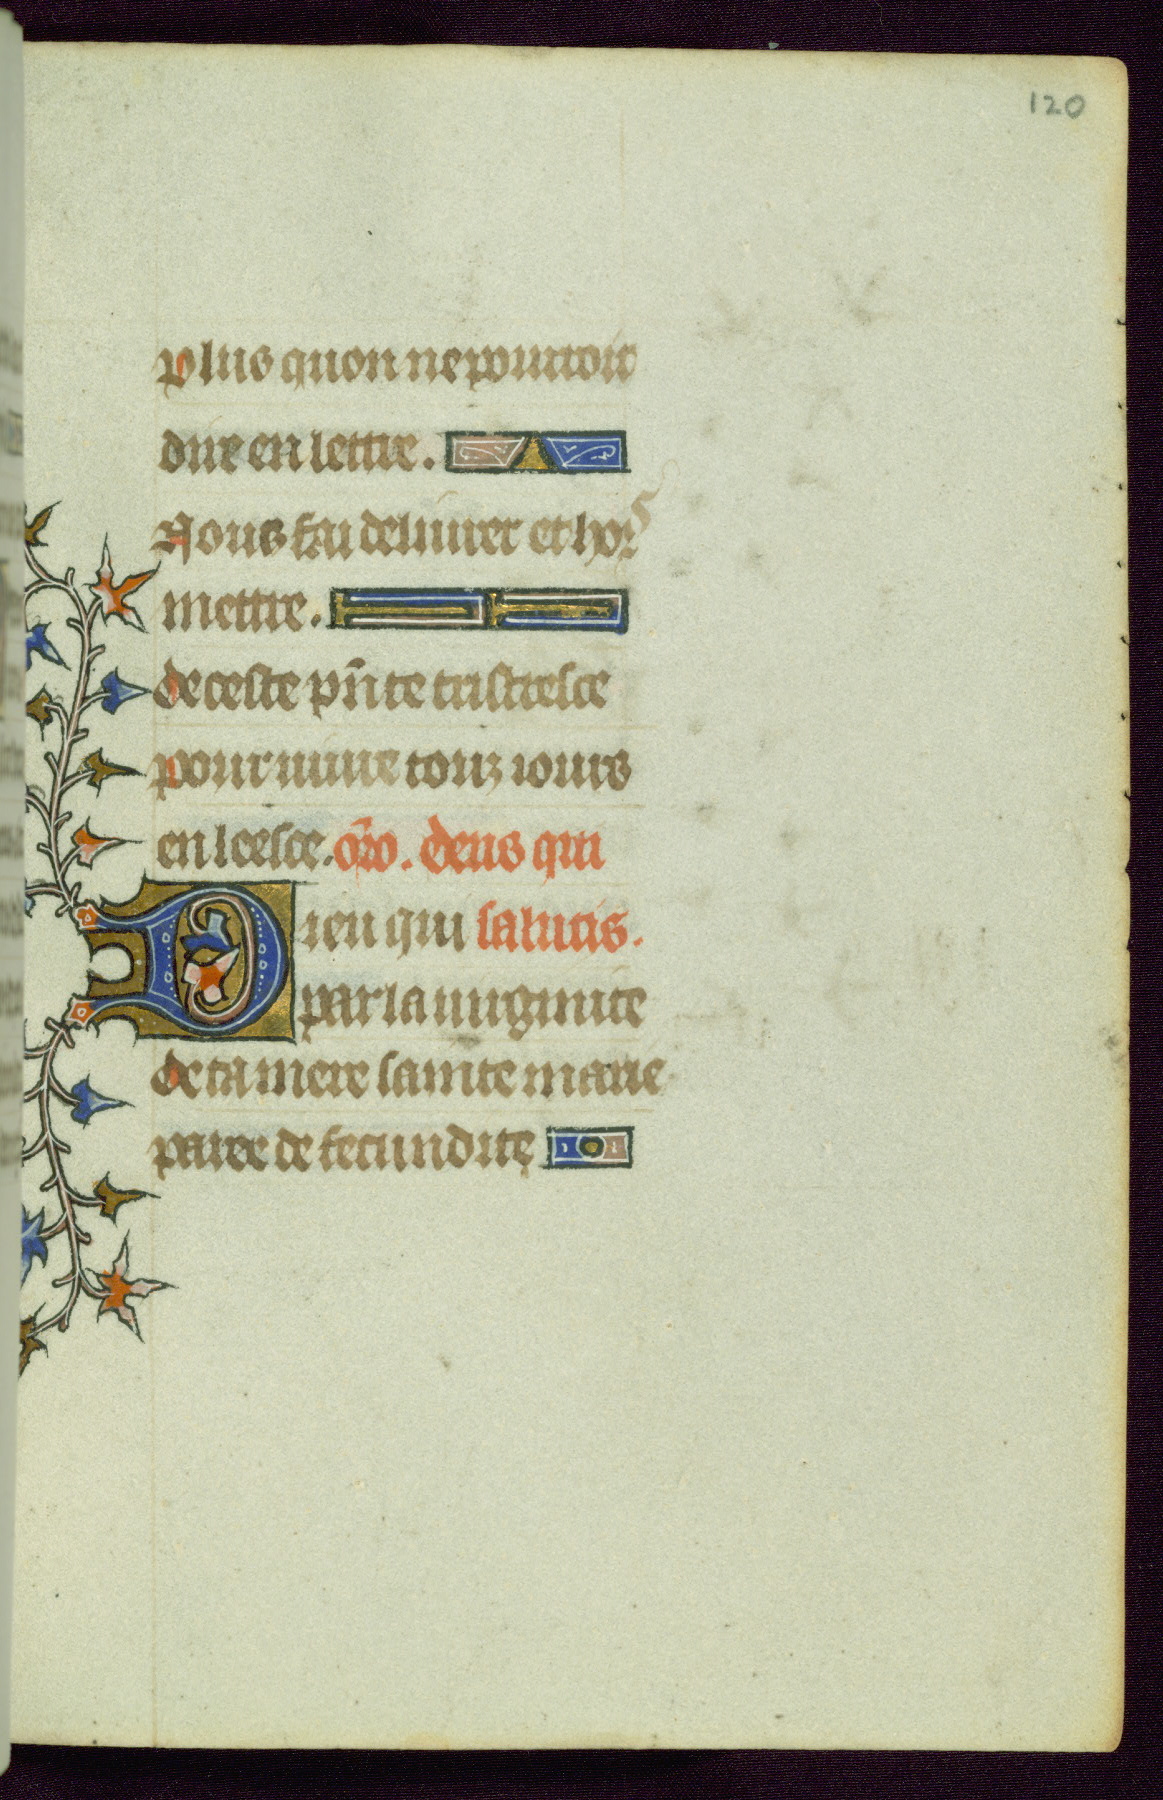 120
plus quon ne pourroit
dire en lettre.
Nous fai deliurer et hors
mettre.
de ceste pñte tristresce
pour uiure touz iours
en leesce. oro. deus qui
Dieu qui salutis.
par la uirginite
de ta mere sainte marie
paree de fecundite